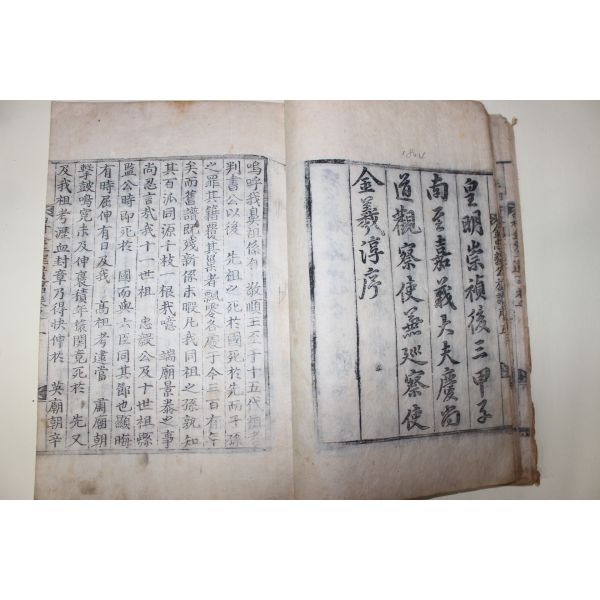 皇明崇禎後三甲子
南至嘉義大夫慶尚
道觀察使兼巡察使
金羲淳序
嗚呼我鼻祖係自 敬順王至于十五代祖考
判書公以後 先祖之死於國死於先而子孫
之罪其籍覆其巢者飄零各處于今三百有年
矣而舊譜既殘新係未暇凡我同祖之孫孰知
其百派同源千枝一根哉噫 端廟景泰之事
尚忍言哉我十一世祖 忠毅公及十世祖縣
監公時即死於 國而與六臣同其節也顯晦
有時屈伸有日及我 高祖考逮當 肅廟朝
擊鼓鳴寃未及伸 積年 竟死於 先又
及我祖考瀝血封章乃得快伸於 英廟朝辛